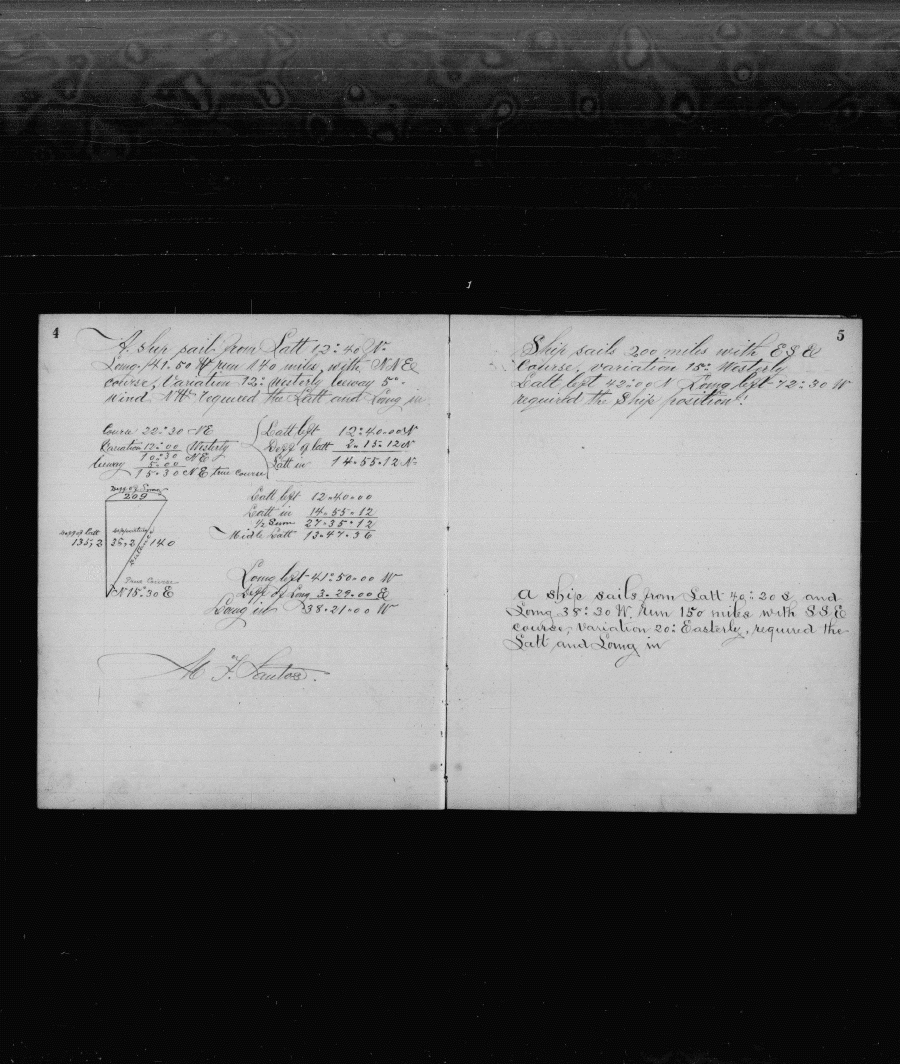 1
4
A ship sail from Latt 12° 40 N.
Long. 41.50 W run 140 miles, with NNE
course, Variation 12° Westerly leeway 5°
wind NW required the Latt and Long in
Course 22°30 NE
Variation 12°00 Westerly
10°30 NE
leeway 5°00
15°30 NE true Course
Latt left 12°40-00 N
Deff of latt 2.15.12 N
Latt in 14.55.12 N
Deff of Long
209
Deff of latt
135,2
departure
36,2
Distance
140
True Course
N 15°30 E
Latt left 12.40.00
Latt in 14.55.12
1/2 Sum 27.35.12
Midle Latt 13.47.36
Long left 41°50.00 W
Deff of Long 3.29.00 E
Long in 38.21.00 W
M F. Santos.
5
Ship sails 200 miles with ESE
Course, variation 15° Westerly
Latt left 42°00 N Long left 72°30 W
required the Ship position!
A ship sails from Latt 40°20 S, and
Long 38°30 W, run 150 miles with SSE
course, variation 20° Easterly, required the
Latt and Long in